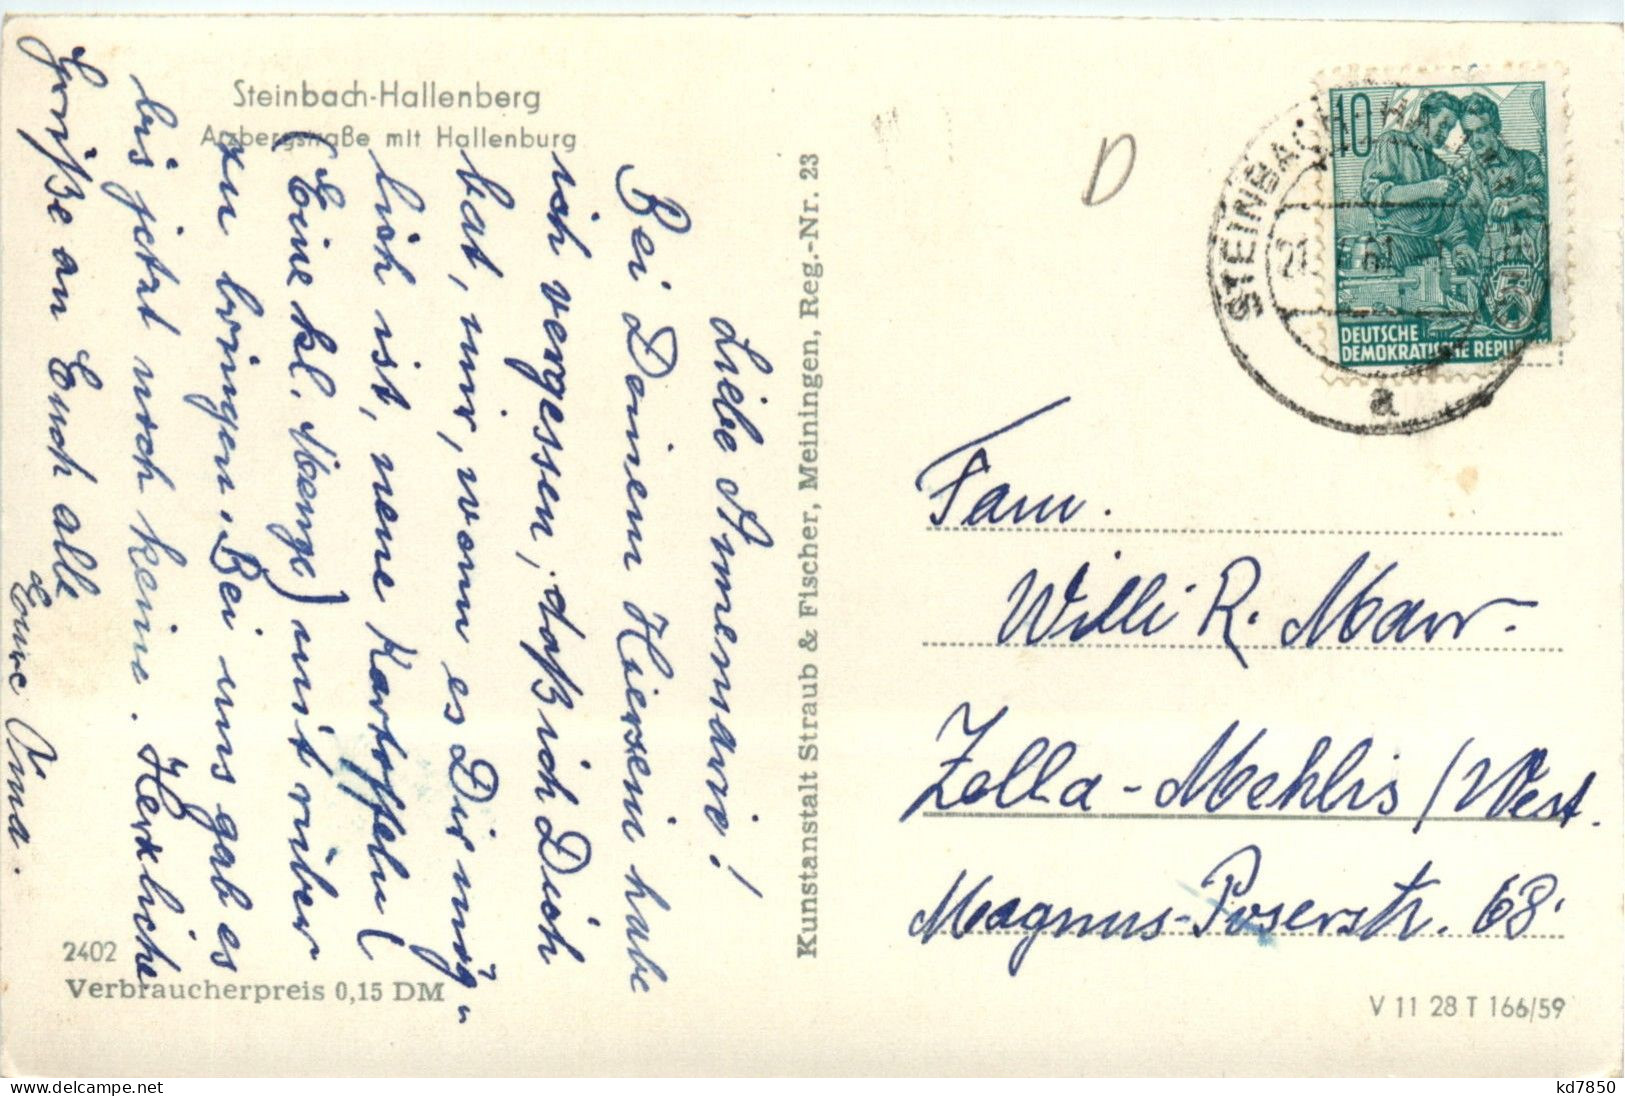 Steinbach-Hallenberg
Arzbergstraße mit Hallenburg
Liebe Annemarie!
Bei Deinem Hiersein habe
ich vergessen, daß ich Dich
bat, mir, wenn es Dir mög-
lich ist, neue Kartoffeln (
(Eine kl. Menge) mit rüber
zu bringen. Bei uns gab es
bis jetzt noch keine. Herzliche
Grüße an Euch alle
Eure
Kunstanstalt Straub & Fischer, Meiningen, Reg.-Nr. 23
D
STEINBACH-HALLENBERG
21. 61
a
10
5
DEUTSCHE
DEMOKRATISCHE REPU
Fam.
Willi R. Marr.
Zella-Mehlis / West.
Magnus-Poserstr. 68.
2402
Verbraucherpreis 0,15 DM
V 11 28 T 166/59
delcampe.net
kd7850